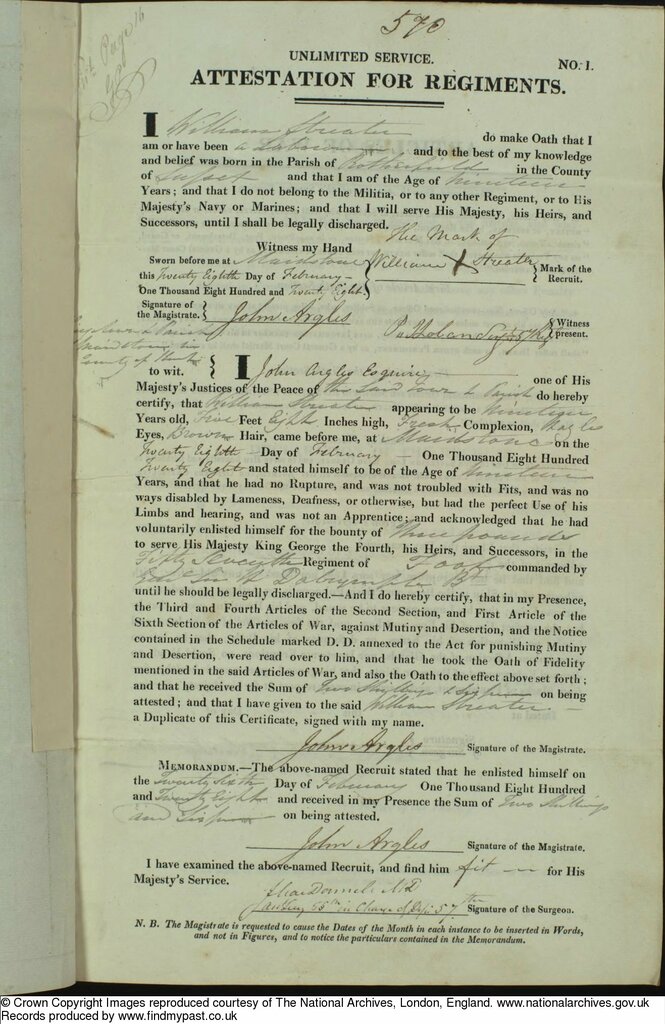 570
UNLIMITED SERVICE.
NO. 1.
ATTESTATION FOR REGIMENTS.
I William Streater do make Oath that I
am or have been a Labourer, and to the best of my knowledge
and belief was born in the Parish of Rotherfield in the County
of Sussex and that I am of the Age of Nineteen
Years; and that I do not belong to the Militia, or to any other Regiment, or to His
Majesty's Navy or Marines; and that I will serve His Majesty, his Heirs, and
Successors, until I shall be legally discharged.
The Mark of
Witness my Hand
Sworn before me at Maidstone
William X Streater
Mark of the
Recruit.
this Twenty Eighth Day of February
One Thousand Eight Hundred and Twenty Eight
Signature of
the Magistrate.
John Argles
Witness
present.
to wit.
I John Argles Esquire one of His
Majesty's Justices of the Peace of the said Town & Parish do hereby
certify, that William Streater appearing to be Nineteen
Years old, Five Feet Eight Inches high, Fresh Complexion, Hazle
Eyes, Brown Hair, came before me, at Maidstone on the
Twenty Eighth Day of February One Thousand Eight Hundred
Twenty Eight and stated himself to be of the Age of Nineteen
Years, and that he had no Rupture, and was not troubled with Fits, and was no
ways disabled by Lameness, Deafness, or otherwise, but had the perfect Use of his
Limbs and hearing, and was not an Apprentice; and acknowledged that he had
voluntarily enlisted himself for the bounty of Three pounds
to serve His Majesty King George the Fourth, his Heirs, and Successors, in the
Fifty Seventh Regiment of Foot commanded by
Dalrymple Bt
until he should be legally discharged.—And I do hereby certify, that in my Presence,
the Third and Fourth Articles of the Second Section, and First Article of the
Sixth Section of the Articles of War, against Mutiny and Desertion, and the Notice
contained in the Schedule marked D. D. annexed to the Act for punishing Mutiny
and Desertion, were read over to him, and that he took the Oath of Fidelity
mentioned in the said Articles of War, and also the Oath to the effect above set forth;
and that he received the Sum of Two Shillings & Sixpence on being
attested; and that I have given to the said William Streater
a Duplicate of this Certificate, signed with my name.
John Argles Signature of the Magistrate.
MEMORANDUM.—The above-named Recruit stated that he enlisted himself on
the Twenty Sixth Day of February One Thousand Eight Hundred
and Twenty Eight and received in my Presence the Sum of Two Shillings
and Sixpence on being attested.
John Argles Signature of the Magistrate.
I have examined the above-named Recruit, and find him fit for His
Majesty's Service.
Signature of the Surgeon.
N. B. The Magistrate is requested to cause the Dates of the Month in each instance to be inserted in Words,
and not in Figures, and to notice the particulars contained in the Memorandum.
© Crown Copyright Images reproduced courtesy of The National Archives, London, England. www.nationalarchives.gov.uk
Records produced by www.findmypast.co.uk